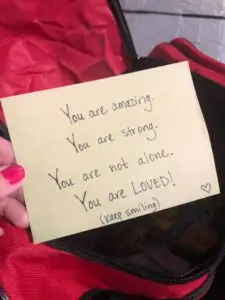 You are amazing.
You are strong.
You are not alone.
You are LOVED!
(keep smiling)